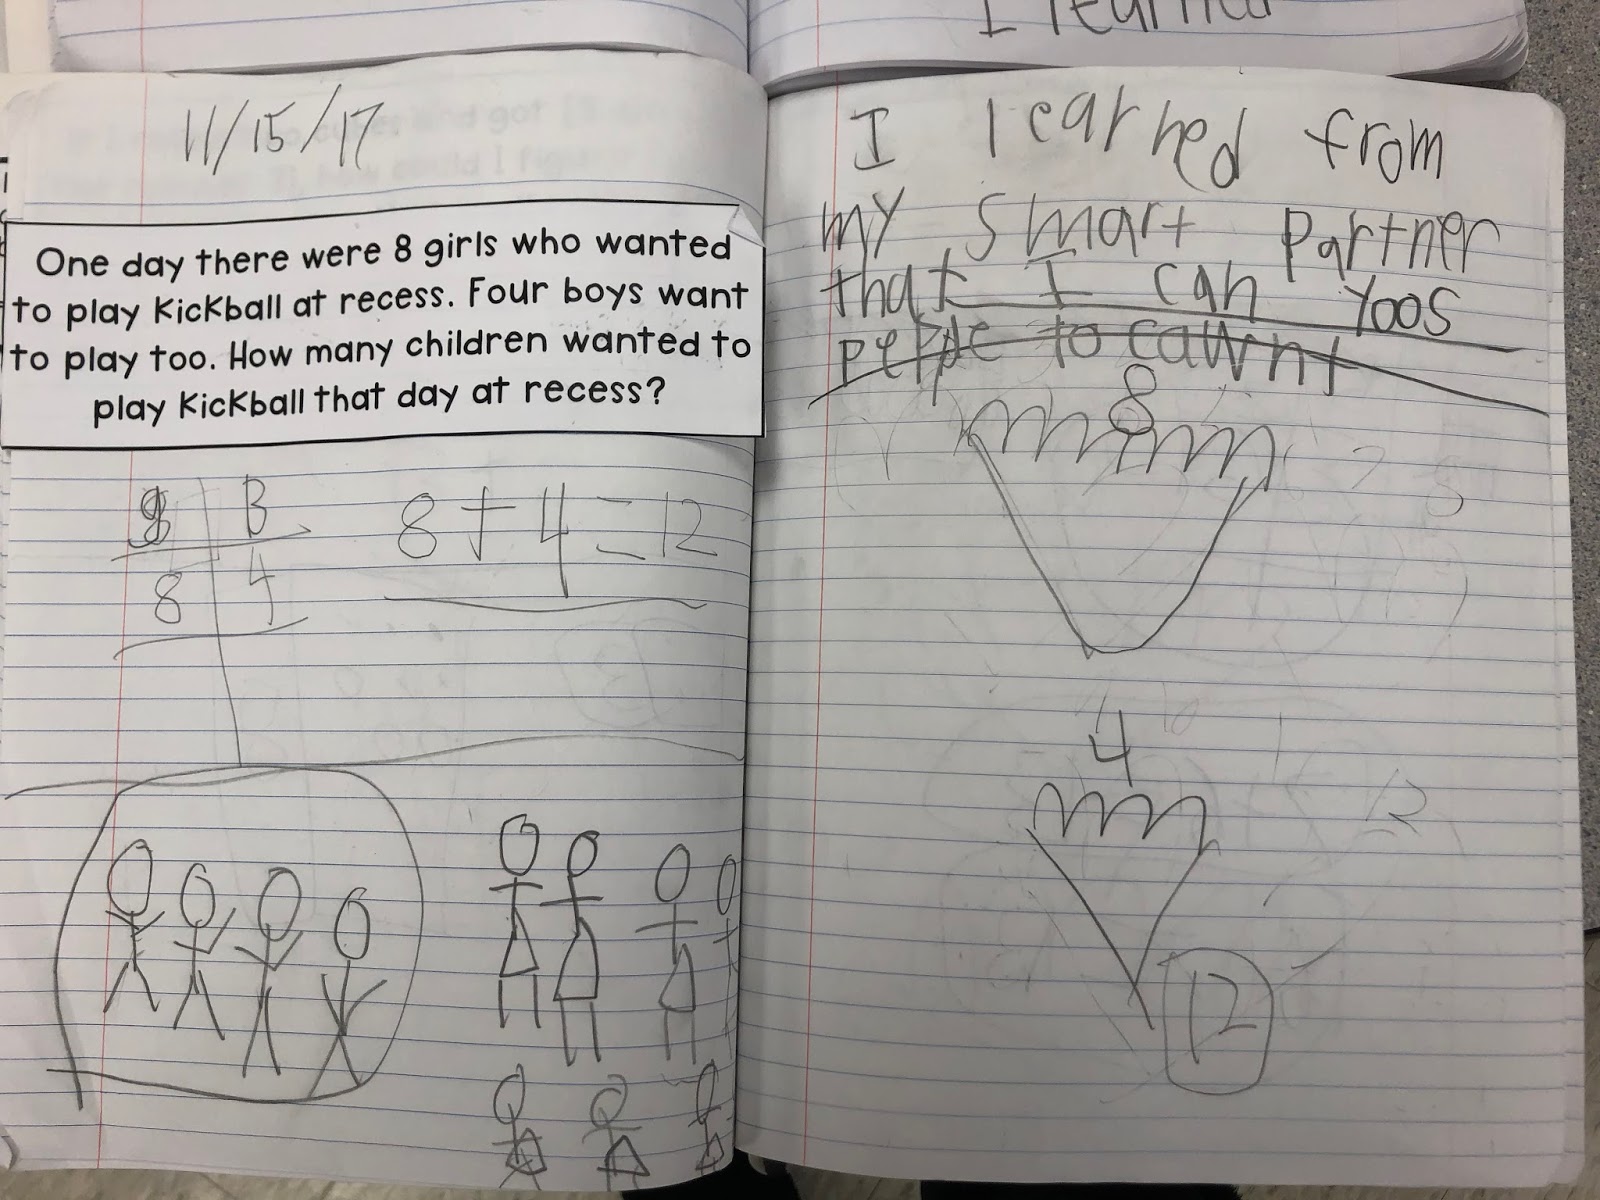 I learned
11/15/17
One day there were 8 girls who wanted
to play kickball at recess. Four boys want
to play too. How many children wanted to
play kickball that day at recess?
B
8 4
8+4=12
I learned from
my smart partner
that I can yoos
pepple to cawnt
8
4
12